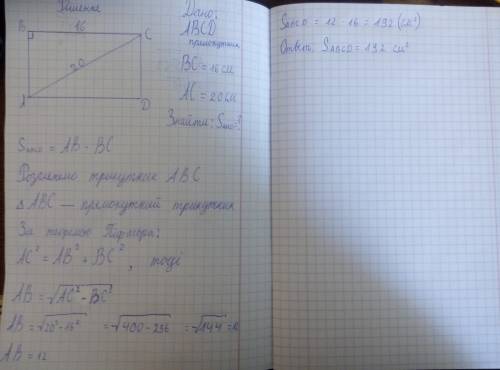 Рішення
B 16 C
20
A D
Дано:
ABCD
прямокутник
BC = 16 см
AC = 20 см
Знайти: S_ABCD - ?
S_ABCD = AB · BC
Розглянемо трикутник ABC
△ ABC — прямокутний трикутник
За теоремою Піфагора:
AC² = AB² + BC², тоді
AB = √AC² - BC²
AB = √20² - 16² = √400 - 256 = √144 = 12
AB = 12
S_ABCD = 12 · 16 = 192 (см²)
Ответ: S_ABCD = 192 см²